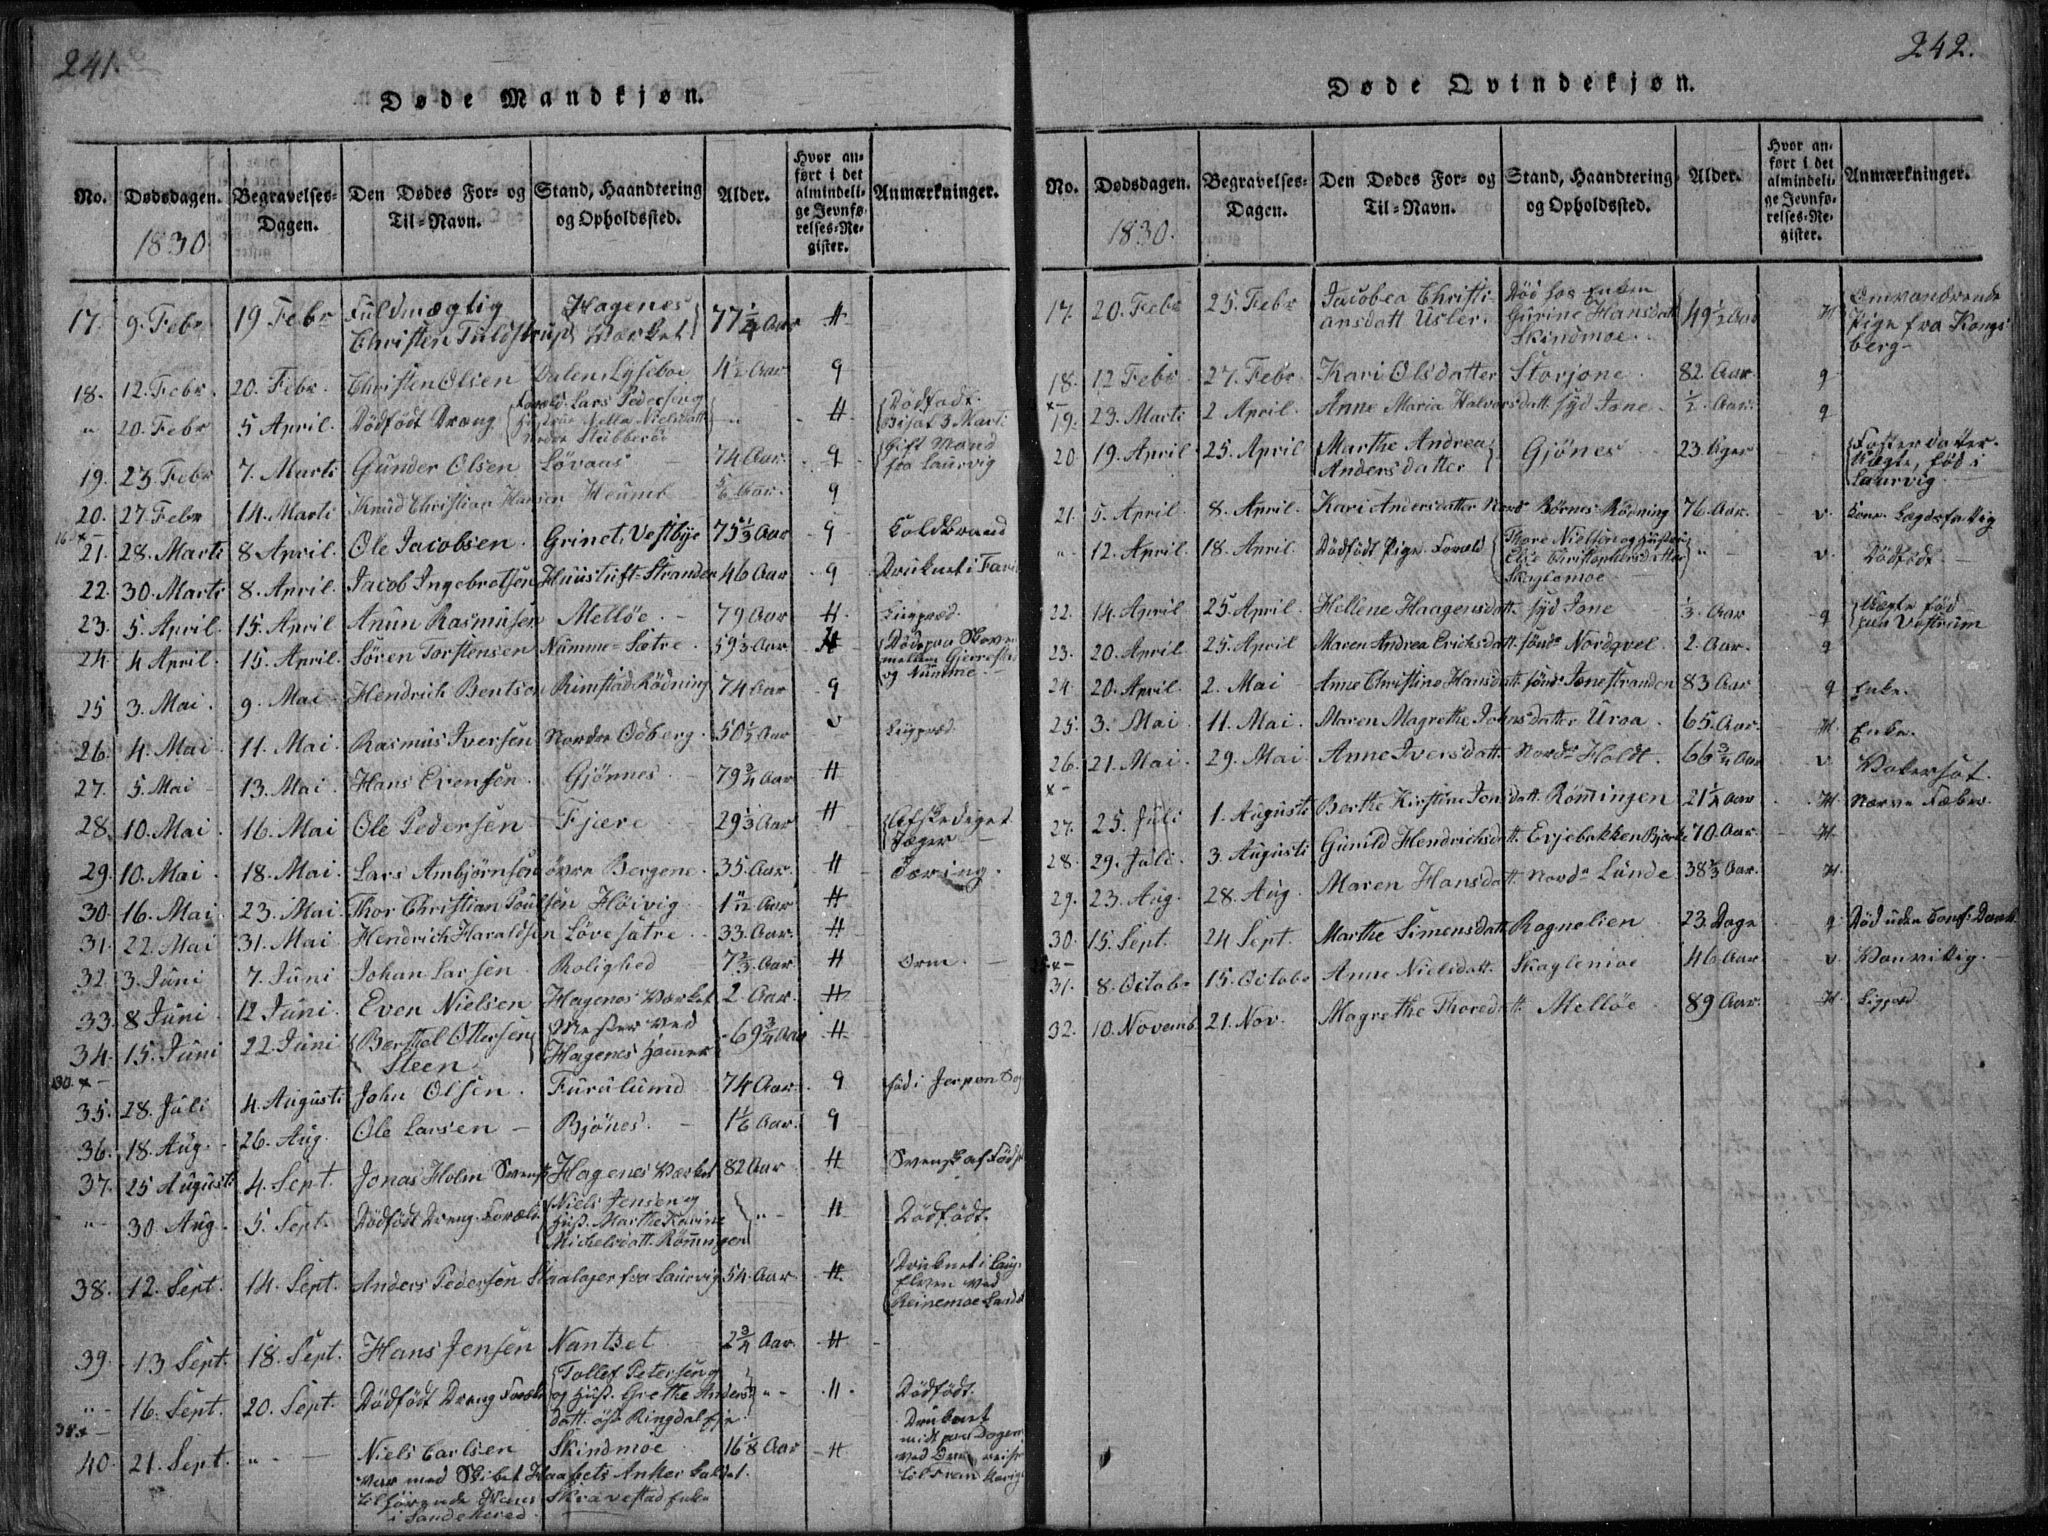 241.
Døde Mandkjøn.
No. Dødsdagen. Begravelses-Dagen. Den Dødes For- og Til-Navn. Stand, Haandtering og Opholdssted. Alder. Hvor anført i det almindelige Jevnførelses-Register. Anmærkninger.
1830
17. 9. Febr 19 Febr Fuldmægtig Christen Tuldstrup Hagenes Værket 77 1/4 Aar H
18. 12. Febr. 20. Febr. Christen Olsen Dalen, Lyseboe Aar 9
" 20. Febr 5 April. Dödfödt Dreng Foræld. Lars Pedersen og Nielsdatt H Dödfödt.
19. 23. Febr 7. Marti Gunder Olsen Lövaas 74 Aar. 9 Gift Mand fra Laurvig
20. 27. Febr 14. Marti Knud Christian Hansen Heumb 5/6 Aar. 9
21. 28. Marti 8 April. Ole Jacobsen. Grinet, Vestbye 75 1/3 Aar 9 Koldbrand
22. 30. Marti 8. April. Jacob Ingebretsen Huustuft-Strander 46 Aar 9 Druknet i
23. 5. April. 15. April Anun Rasmusen Melløe. 79 Aar H.
24. 4 April. 15. April. Sören Torstensen Numme-Sætre. 59 1/3 Aar H og Numme.
25 3. Mai. 9. Mai Hendrich Bentsen Rimstad, Rödning 74 Aar 9
26. 4. Mai 11. Mai. Rasmus Iversen Nordre Odberg. 50 1/2 Aar v
27. 5. Mai 13. Mai. Hans Evensen. Gjönnes. 79 3/4 Aar H
28. 10. Mai 16. Mai Ole Pedersen Fjære 29 1/3 Aar H Afskediget Jæger
29. 10. Mai 18. Mai. Lars Ambjörnsen övre Bergene. 35. Aar. H Tæring.
30. 16. Mai 23. Mai. Thor Christian Poulsen Höivig 1 11/12 Aar H
31. 22. Mai 31. Mai Hendrich Haraldsen Lövesætre 33. Aar. H
32. 3. Juni 7. Juni Johan Larsen. Rolighed 7 2/3 Aar H Orm.
33. 8 Juni. 12 Juni. Even Nielsen Hagenes Værket 2. Aar. H
34. 15. Juni 22. Juni Berthel Ottersen Steen Mester ved Hagenes Hammer 69 3/4 Aar H
35. 28. Juli 4. Augusti John Olsen. Furulund 74 Aar. 9 föd i
36. 18. Aug. 26. Aug. Ole Larsen Bjönes. 1 1/6 Aar. 9
37. 25 Augusti 4. Sept. Jonas Holm Svensk Hagenes Værket 82 Aar H Svensk af
" 30 Aug. 5. Sept. Dödfödt Dreng. Foræld. Niels Jensen og Hust. Marthe Karine Michelsdatt. Römmingen " H Dödfödt.
38. 12. Sept. 14. Sept. Anders Pedersen fra Laurvig 54. Aar. H Druknet i Elven ved
39. 13 Sept. 18. Sept. Hans Jensen Nantset 2 3/4 Aar. H
" 16. Sept. 20. Sept. Dödfödt Dreng Tollef Petersen og Hust. Grethe Anders datt. öst. Ringdal " " Dödfödt.
40. 21. Sept. " Niels Carlsen Skindmoe 16 1/8 Aar H Druknet midt paa Dagen
var med Skibet Haabets Anker
tilhörende Skravestad Enke
i Sandeherred.
242.
Døde Qvindekjøn.
No. Dødsdagen. Begravelses-Dagen. Den Dødes For- og Til-Navn. Stand, Haandtering og Opholdssted. Alder. Hvor anført i det almindelige Jevnførelses-Register. Anmærkninger.
1830.
17. 20. Febr 25. Febr Jacobea Christiansdatt Usler. Död hos Enken Gurine Hansdatt Skindmoe. 49 1/2 Aar H Omvandrende Pige fra Kongsberg
18. 12 Febr 27. Febr. Kari Olsdatter Storjone. 82. Aar. 9
19. 23. Marti 2. April. Anne Maria Halvorsdatt. syd Jone 1/2 Aar. 9
20 19. April 25. April Marthe Andrea Andersdatter Gjönes 23. Uger Fosterdatter. Uægte, föd i Laurvig.
21. 5. April 8. April. Kari Andersdatter Nord Børnes Rödning 76 Aar. v Legdsfattig
" 12. April. 18. April. Dödfödt Pige. Foræld. Thore Nielsen og Hustru Else Christophersdatter Skaglemoe " v. Dödfödt.
22. 14. April 25. April. Hellene Haagensdatt. syd Jone 1/3. Aar 9 Uægte föd
23. 20. April 25. April Maren Andrea Erichsdatt. sönd Nordqvel 2. Aar. 9
24. 20. April. 2. Mai Anne Christine Hansdatt. sönd Jonestranden 83 Aar 9 Enke.
25. 3. Mai 11. Mai. Maren Magrethe Johnsdatter Uroa. 65. Aar. H. Enke.
26. 21. Mai. 29. Mai Anne Iversdatt. Nordr Holdt. 66 3/4 Aar v. Vatersot.
27. 25. Juli 1. Augusti Berthe Kirstine Jonsdatt. Römingen 21 1/4 Aar H. Nerve Feber.
28. 29. Juli. 3. Augusti Gunild Hendrichsdatt. Evjebakken Bjerke 70. Aar. H.
29. 23 Aug. 28. Aug. Maren Hansdatt. Nordr Lunde 38 2/3 Aar. H
30. 15. Sept. 24 Sept. Marthe Simensdatt. Rognelien. 23. Dage 9 Död uden
31. 8. Octobr 15. Octobr Anne Nielsdatt. Skaglemoe 46 Aar. v.
32. 10. Novemb. 21. Nov. Magrethe Thoredatt. Melløe 89 Aar. H.